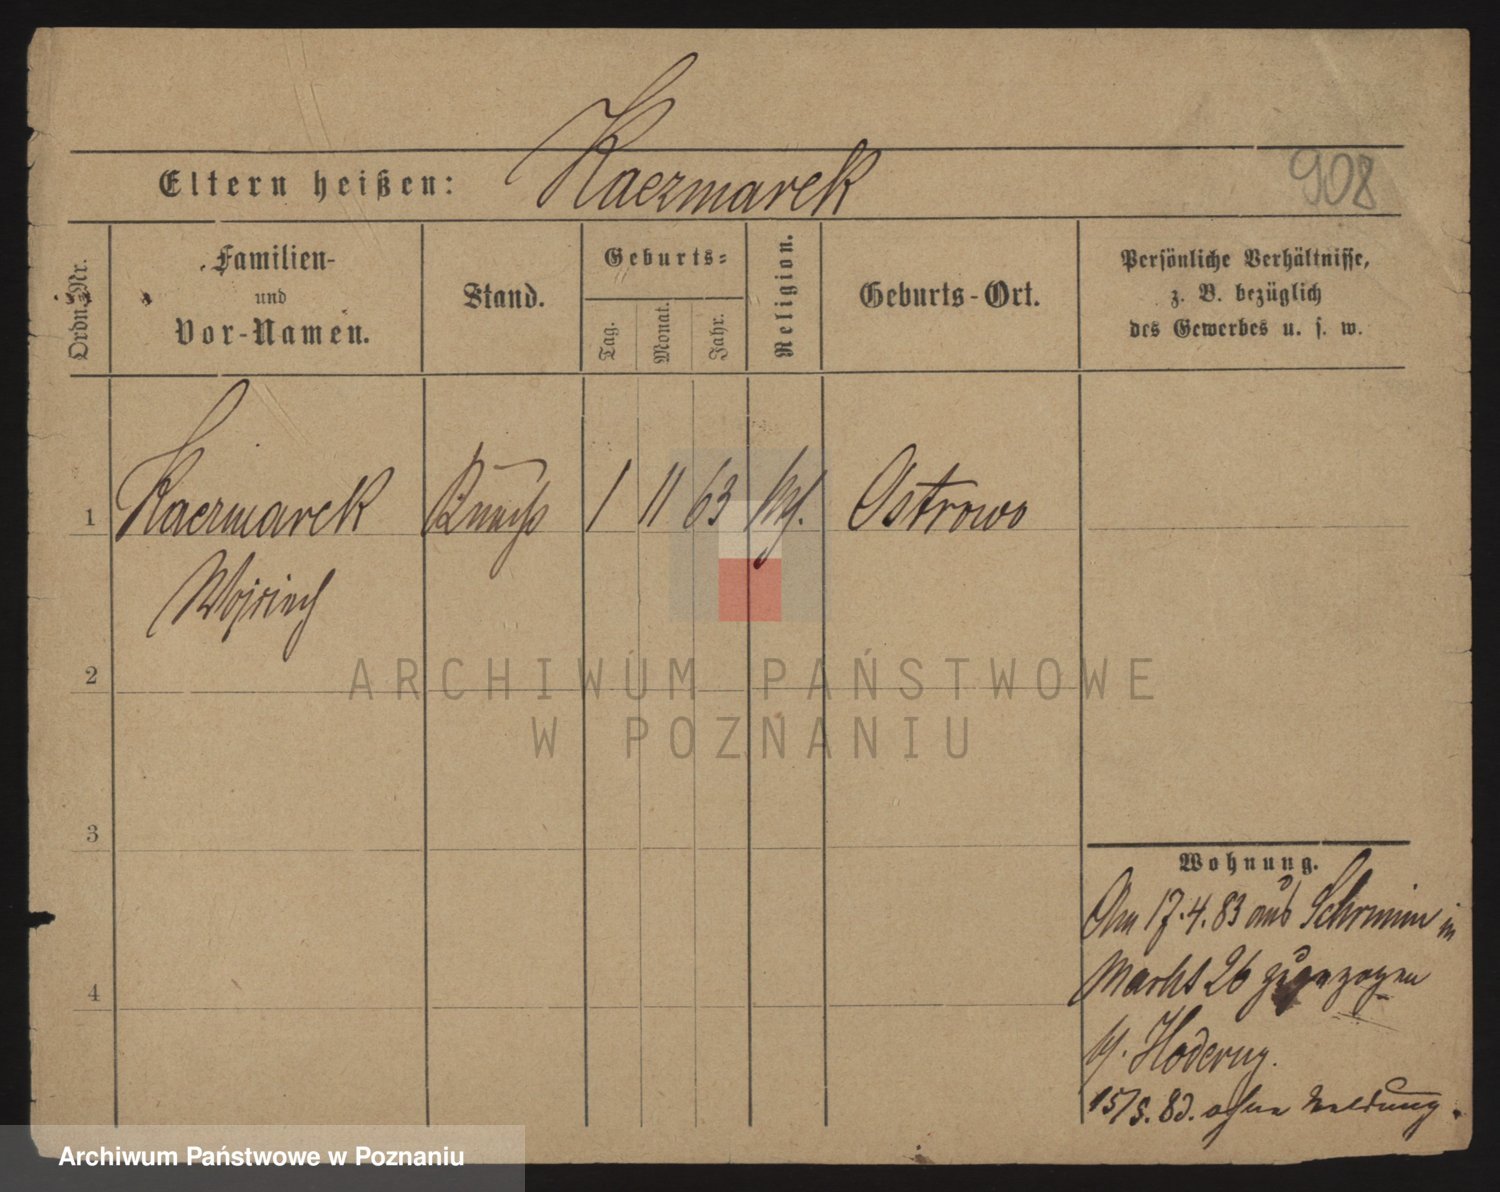 Kaczmarek
Eltern heißen:
908
Ordn.-Nr.
Familien-
und
Vor-Namen.
Stand.
Geburts-
Tag.
Monat.
Jahr.
Religion.
Geburts-Ort.
Persönliche Verhältnisse,
z. B. bezüglich
des Gewerbes u. s. w.
1 Kaczmarek 1 11 63 Ostrowo
Wojciech
2
3
4
Wohnung.
Am 17.4.83 aus Schrimm in
Markt 26 zugezogen
15/5.83. ohne Meldung.
ARCHIWUM PAŃSTWOWE
W POZNANIU
Archiwum Państwowe w Poznaniu